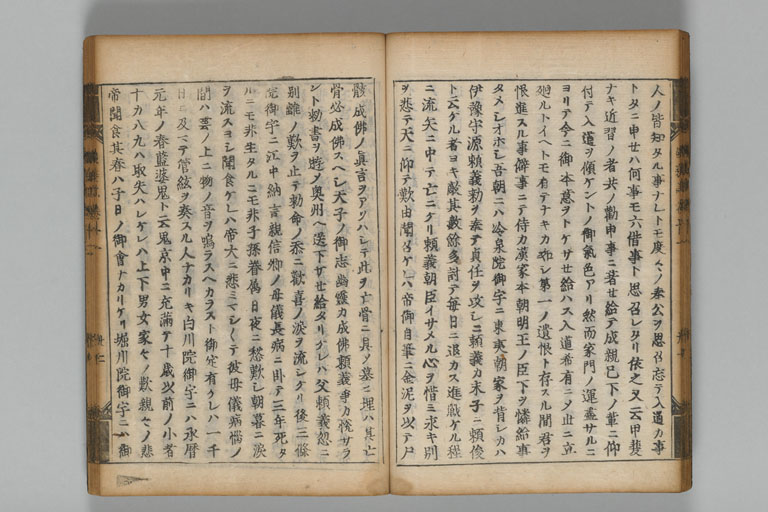 人ノ皆知タル事ナレトモ度々ノ奉公ヲ思召忘テ入道カ事
トタニ申セハ何事モ六借事ト思召レタリ依之又云甲斐
ナキ近習ノ者共ノ勸申事ニ著セ給テ成親已下ノ輩ニ仰
付テ入道ヲ傾ケントノ御氣色アリ然而家門ノ運盡サルニ
ヨリテ今ニ御本意ヲトケサセ給ハス入道希有ニノ止ニ立
廻ルトイヘトモ有テナキカ如シ第一ノ遺恨ト存スル間君ヲ
恨進スル事僻事ニテ侍カ漢家本朝明王ノ臣下ヲ憐給事
タメシオホシ吾朝ニハ冷泉院御字ニ東夷朝家ヲ背シカハ
伊豫守源頼義勅ヲ奉テ貞任ヲ攻シニ頼義カ末子ニ頼俊
ト云ケル者ヨキ敵其數餘多討テ毎日ニ退カス進戰ケル程
ニ流矢ニ中テ亡ニケリ頼義朝臣イサメル心ヲ惜ミ永キ別
ヲ悲テ天ニ仰テ歎由聞召ケレハ帝御自筆ニ金泥ヲ以テ尸
骸成佛ノ眞言ヲアソハシテ此ヲ亡骨ニ具ノ墓ニ埋ハ其亡
骨必成佛スヘシ天子ノ御志幽靈カ成佛頼義爭カ報サラ
ント勅書ヲ遊ノ奥州ヘ送下サセ給タリケレハ父頼義忽ニ
別離ノ歎ヲ止テ勅命ノ忝ニ歡喜ノ淚ヲ流シケリ後三條
院御字ニ江中納言親信卿ノ母儀長病ニ臥テ三年死タ
ルニモ非生タルニモ非子孫眷屬日夜ニ愁歎シ朝暮ニ淚
ヲ流スヨシ聞食ケレハ帝大ニ悲ミマシ〳〵テ彼母儀病惱ノ
間ハ雲ノ上ニ物ノ音ヲ鳴ラスヘカラスト御定有ケレハ一千
日ニ及ニテ管絃ヲ奏スル人ナカリキ白川院御字ニハ永曆
元年ノ春藍婆鬼ト云鬼京中ニ充滿テ十歳以前ノ小者
十カ八九ハ取失ハレケレハ上下男女家々ノ歎親々ノ悲
帝聞食其春ハ子日ノ御會ナカリケリ堀川院御字ニハ御